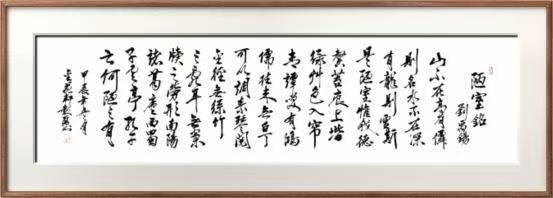 陋室銘
劉禹錫
山不在高有僊
則名水不在深
有龍則靈斯
是陋室惟我德
馨苔痕上階
綠草色入帘
青譚笑有鴻
儒往來無白丁
可以調素琴閱
金經無絲竹
之亂耳無案
牘之勞形南陽
諸葛廬西蜀
子雲亭孔子
云何陋之有
甲辰年